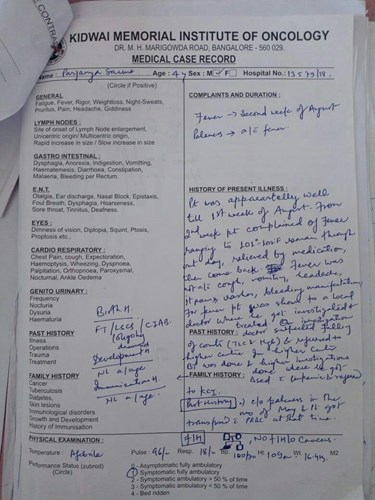 KIDWAI MEMORIAL INSTITUTE OF ONCOLOGY
DR. M. H. MARIGOWDA ROAD, BANGALORE - 560 029.
MEDICAL CASE RECORD
Name : Age : 4 y Sex : M F Hospital No.:
(Circle if Positive)
GENERAL
Fatigue, Fever, Rigor, Weightloss, Night-Sweats,
Pruritus, Pain, Headache, Giddiness
LYMPH NODES :
Site of onset of Lymph Node enlargement,
Unicentric origin/ Multicentric origin,
Rapid increase in size / Slow increase in size
GASTRO INTESTINAL :
Dysphagia, Anorexia, Indigestion, Vomitting,
Haematemesis, Diarrhoea, Constipation,
Malaena, Bleeding per Rectum.
E.N.T.
Otalgia, Ear discharge, Nasal Block, Epistaxis,
Foul Breath, Dysphagia, Hearseness,
Sore throat, Tinnitus, Deafness.
EYES :
Dimness of vision, Diplopia, Squint, Ptosis,
Proptosis etc.,
CARDIO RESPIRATORY :
Chest Pain, cough, Expectoration,
Haemoptylsis, Wheezing, Dyspnoea,
Palpitation, Orthopnoea, Paroxysmal,
Nocturnal, Ankle Oedema
GENITO URINARY :
Frequency
Nocturia
Dysuria
Haematuria
Birth H.
FT / LSCS / CIAB
PAST HISTORY
Illness
Operations
Trauma
Treatment
Development H
NL a / age
FAMILY HISTORY
Cancer
Tuberculosis
Diabetes,
Skin lesions
Immunological disorders
Growth and Development
History of Immunisation
Immunisation H.
NL a / age.
COMPLAINTS AND DURATION :
Fever → Second week of August
Paleness → fever
HISTORY OF PRESENT ILLNESS :
It was apparently well
till 1st week of August. From
2nd week pt complained of fever
ranging to through
out day, relieved by medication,
then come back. Fever was
not cough, vomiting, headache,
rashes, bleeding manifestation,
For fever pt was shown to a local
doctor where he got investigated
treated
PAST HISTORY : doctor suspected
of counts (TLC ↑ Hgb) & referred to
higher centre. In higher centre
BT was done & investigations
FAMILY HISTORY : done where he got
& referred
to KCI.
Past History c/o paleness in the
mo of May & got
transfused PRBC at that time.
F/H No F/H/O Cancer.
PHYSICAL EXAMINATION :
Temperature : Afebrile Pulse : 96/- Resp. 18/- Ht: 109 cm Wt. 16.4 kg M2
Performance Status (zubrod)
(Circle)
0 - Asymptomatic fully ambulatory
1 Symptomatic fully ambulatory
2 - Symptomatic ambulatory > 50 % of time
3 - Symptomatic ambulatory < 50 % of time
4 - Bed ridden